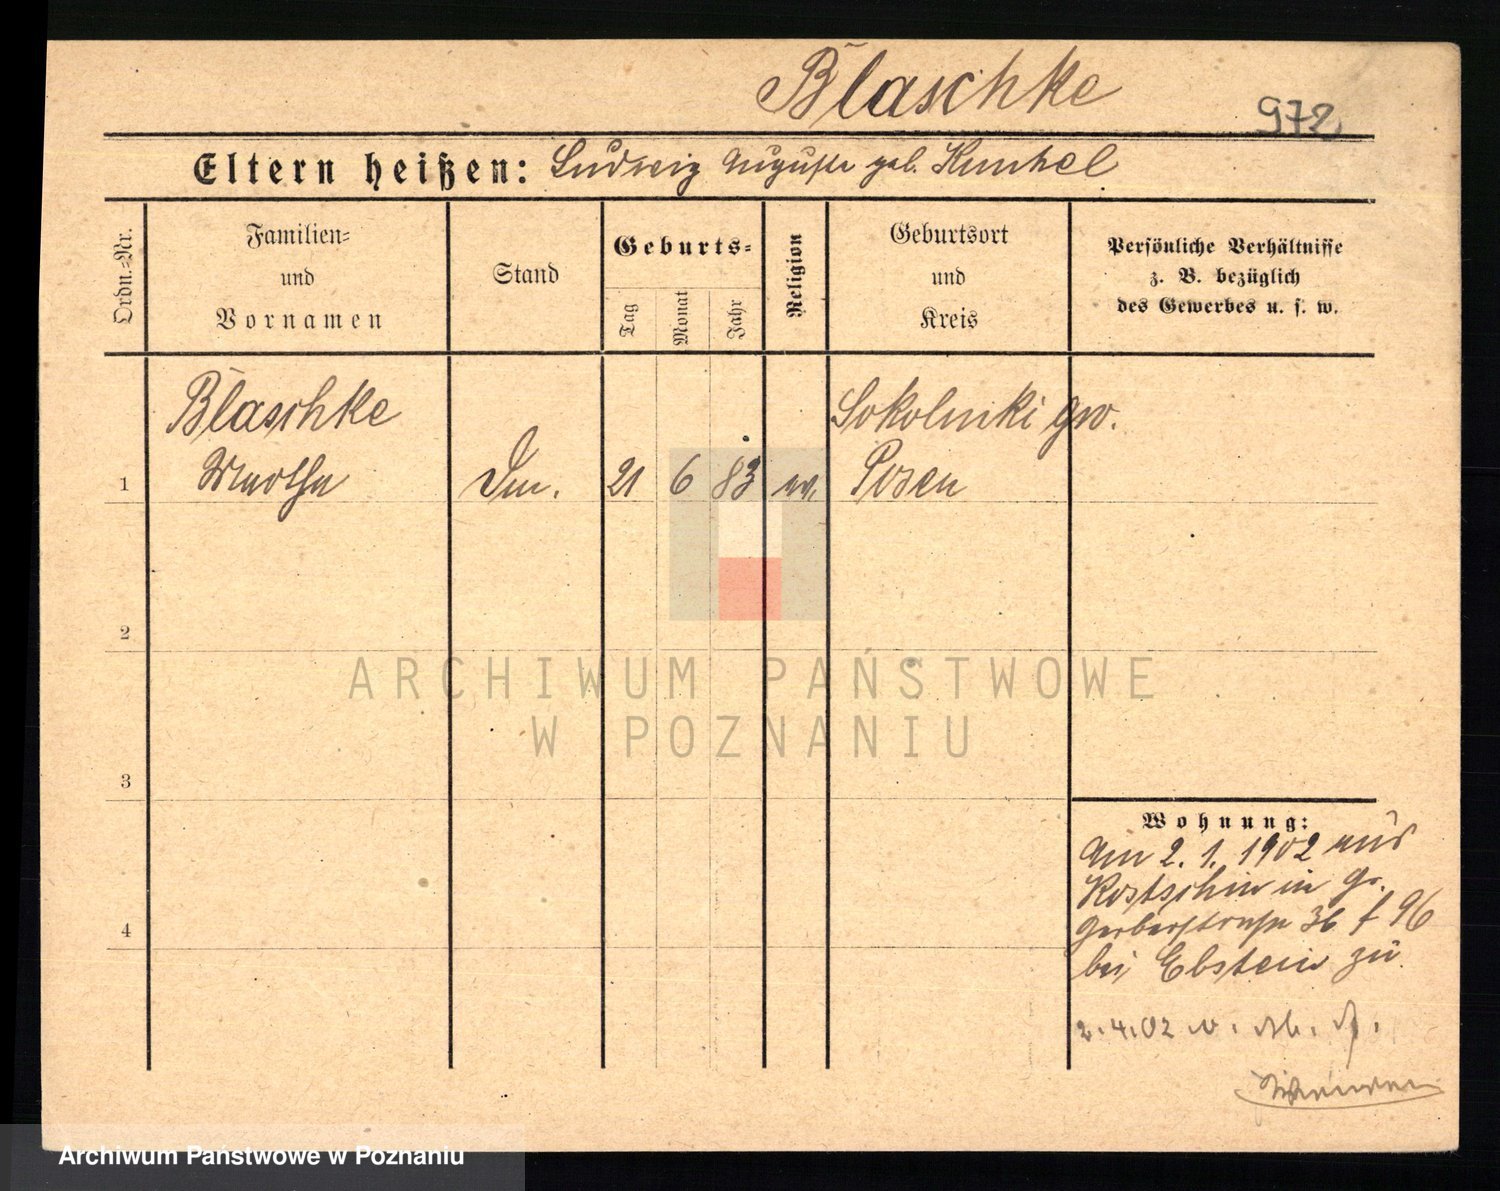 Blaschke
972
Eltern heißen: Ludwig Auguste geb. Kunkel
Ordn.-Nr.
Familien-
und
Vornamen
Stand
Geburts-
Tag
Monat
Jahr
Religion
Geburtsort
und
Kreis
Persönliche Verhältnisse
z. B. bezüglich
des Gewerbes u. s. w.
Blaschke
Sokolniki gw.
1 Martha 21 6 83 Posen
2
3
4
Wohnung:
Am 2. 1. 1902 aus
Kostschin in Gr.
Gerberstraße 36 f 96
bei Ebstein zu
2.4.02
ARCHIWUM PAŃSTWOWE
W POZNANIU
Archiwum Państwowe w Poznaniu